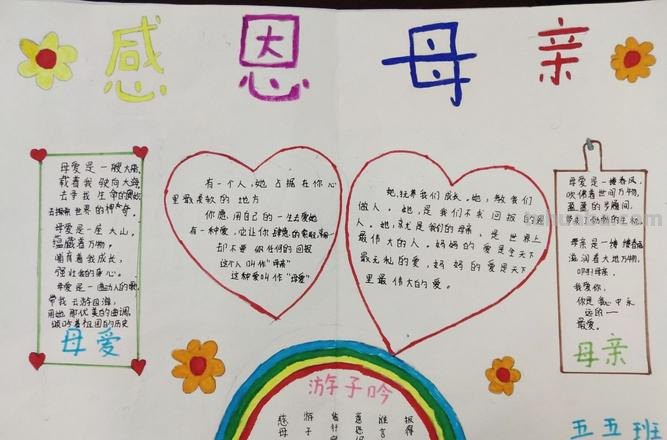 感恩母亲
母爱是一艘大船,
载着我驶向大海
去寻我生命的
世界的神
母爱是一座大山,
蕴藏着万物,
哺育着我成长,
强壮的身心。
母爱是一动人的歌,
带我云游四海,
用她那优美的曲调,
颂吟着祖国的历史
母爱
有一个人,她占据在你心
里最柔软的地方
你愿用自己的一生去爱她
有一种爱,它让你肆意的索取,享
却不要你任何的回报
这个人叫作"母亲"
这种爱叫作"母爱"
她,抚养我们成长。她,教我们
做人。她,是我们不求回报的
人。她,就是我们的母亲,是世界上
最伟大的人。妈妈的爱是全天下
最无私的爱,妈妈的爱是天下
里最伟大的爱。
母爱是一捧春风,
吹佛着世间万物,
母亲是一捧
滋润着大地万物,
母亲,
我爱你,
你是我心中永
远的一
最爱。
母亲
游子吟
慈母
游子
临行
意恐
谁言
报得
五五班